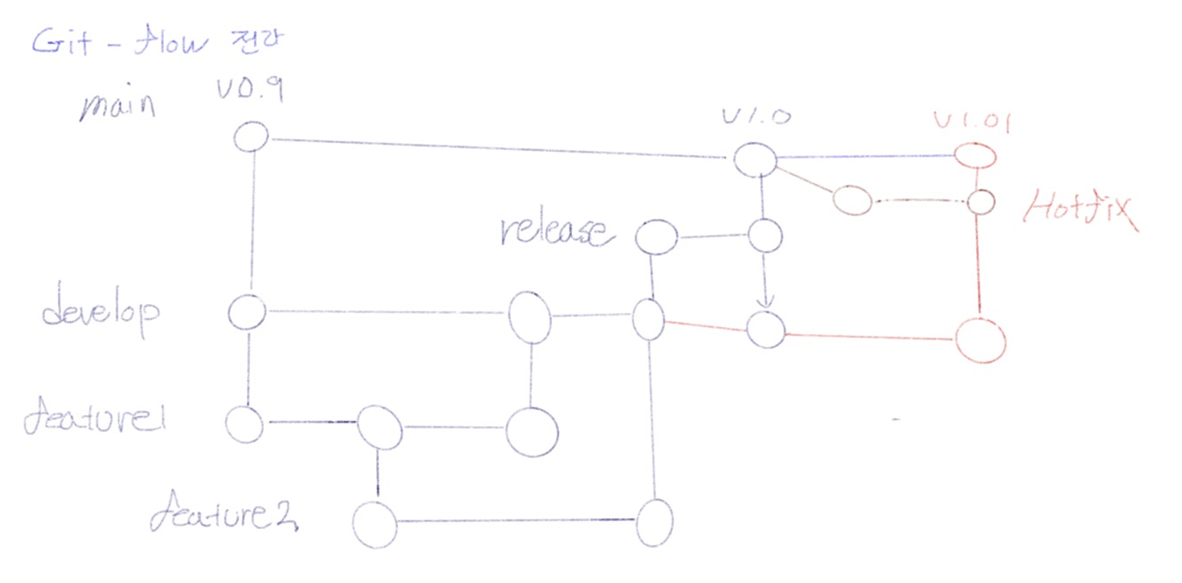 Git - flow 전략
main
v0.9
v1.0
v1.01
Hotfix
release
develop
feature1
feature2